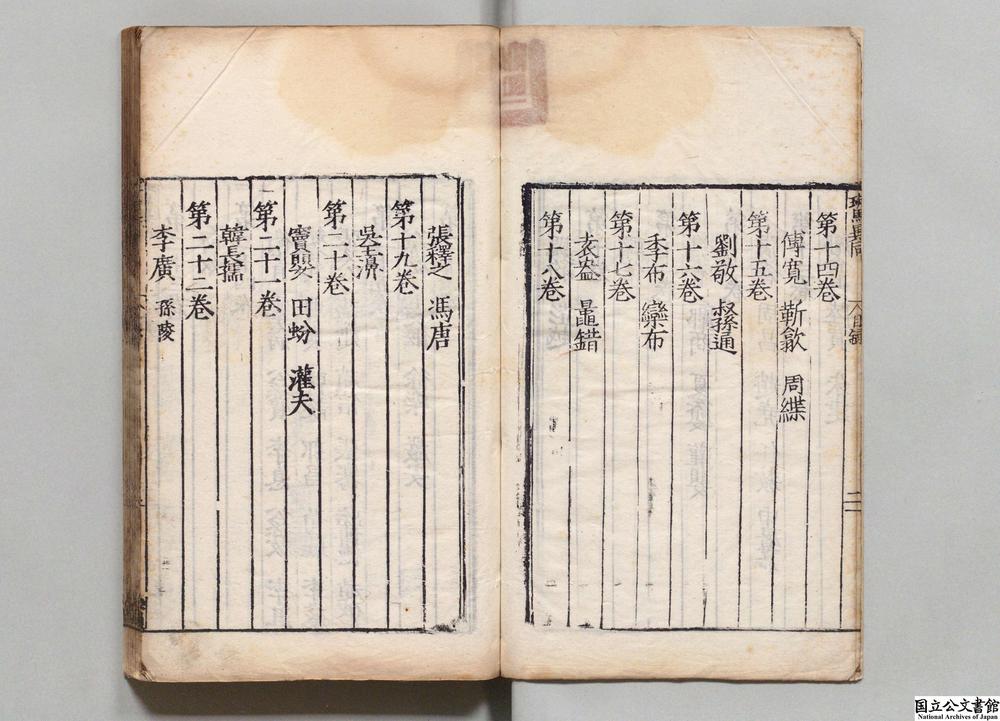 第十四卷
傅寬 靳歙 周緤
第十五卷
劉敬 叔孫通
第十六卷
季布 欒布
第十七卷
袁盎 鼂錯
第十八卷
張釋之 馮唐
第十九卷
吳王濞
第二十卷
竇嬰 田蚡 灌夫
第二十一卷
韓長孺
第二十二卷
李廣 孫陵
国立公文書館
National Archives of Japan